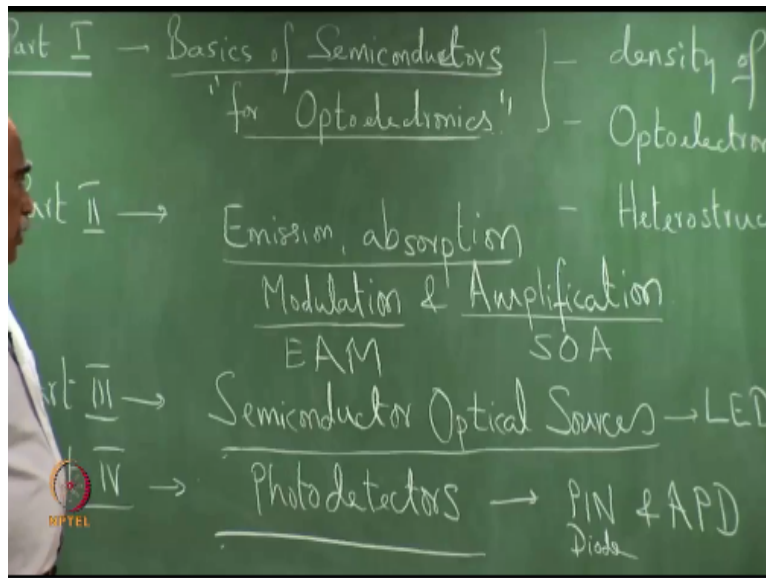 Part I — Basics of Semiconductors
"for Optoelectronics"
- density of
- Optoelectron
Part II → Emission, absorption
- Heterostruc
Modulation & Amplification
EAM SOA
rt III → Semiconductor Optical Sources → LED
IV → Photodetectors → PIN & APD
Diode
NPTEL